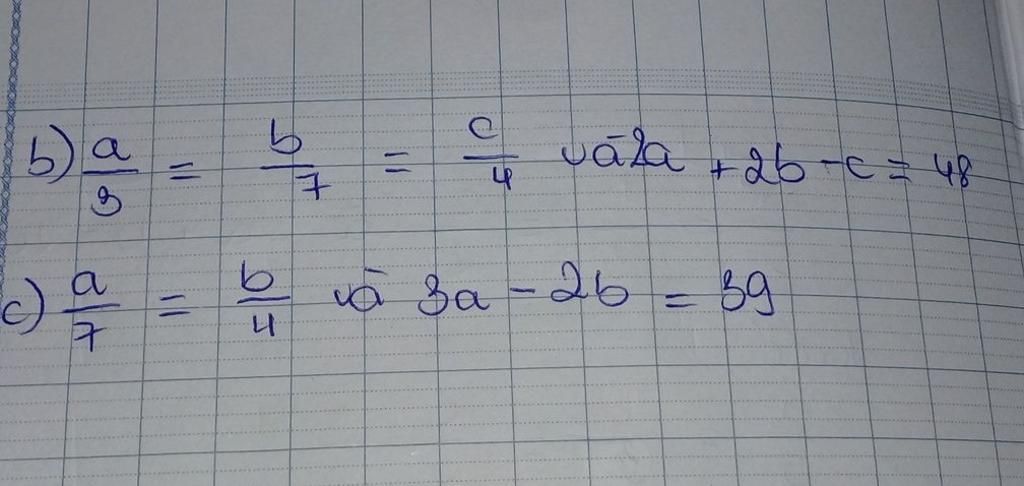 b) a/3 = b/7 = c/4 và 2a + 2b - c = 48
c) a/7 = b/4 và 3a - 2b = 39